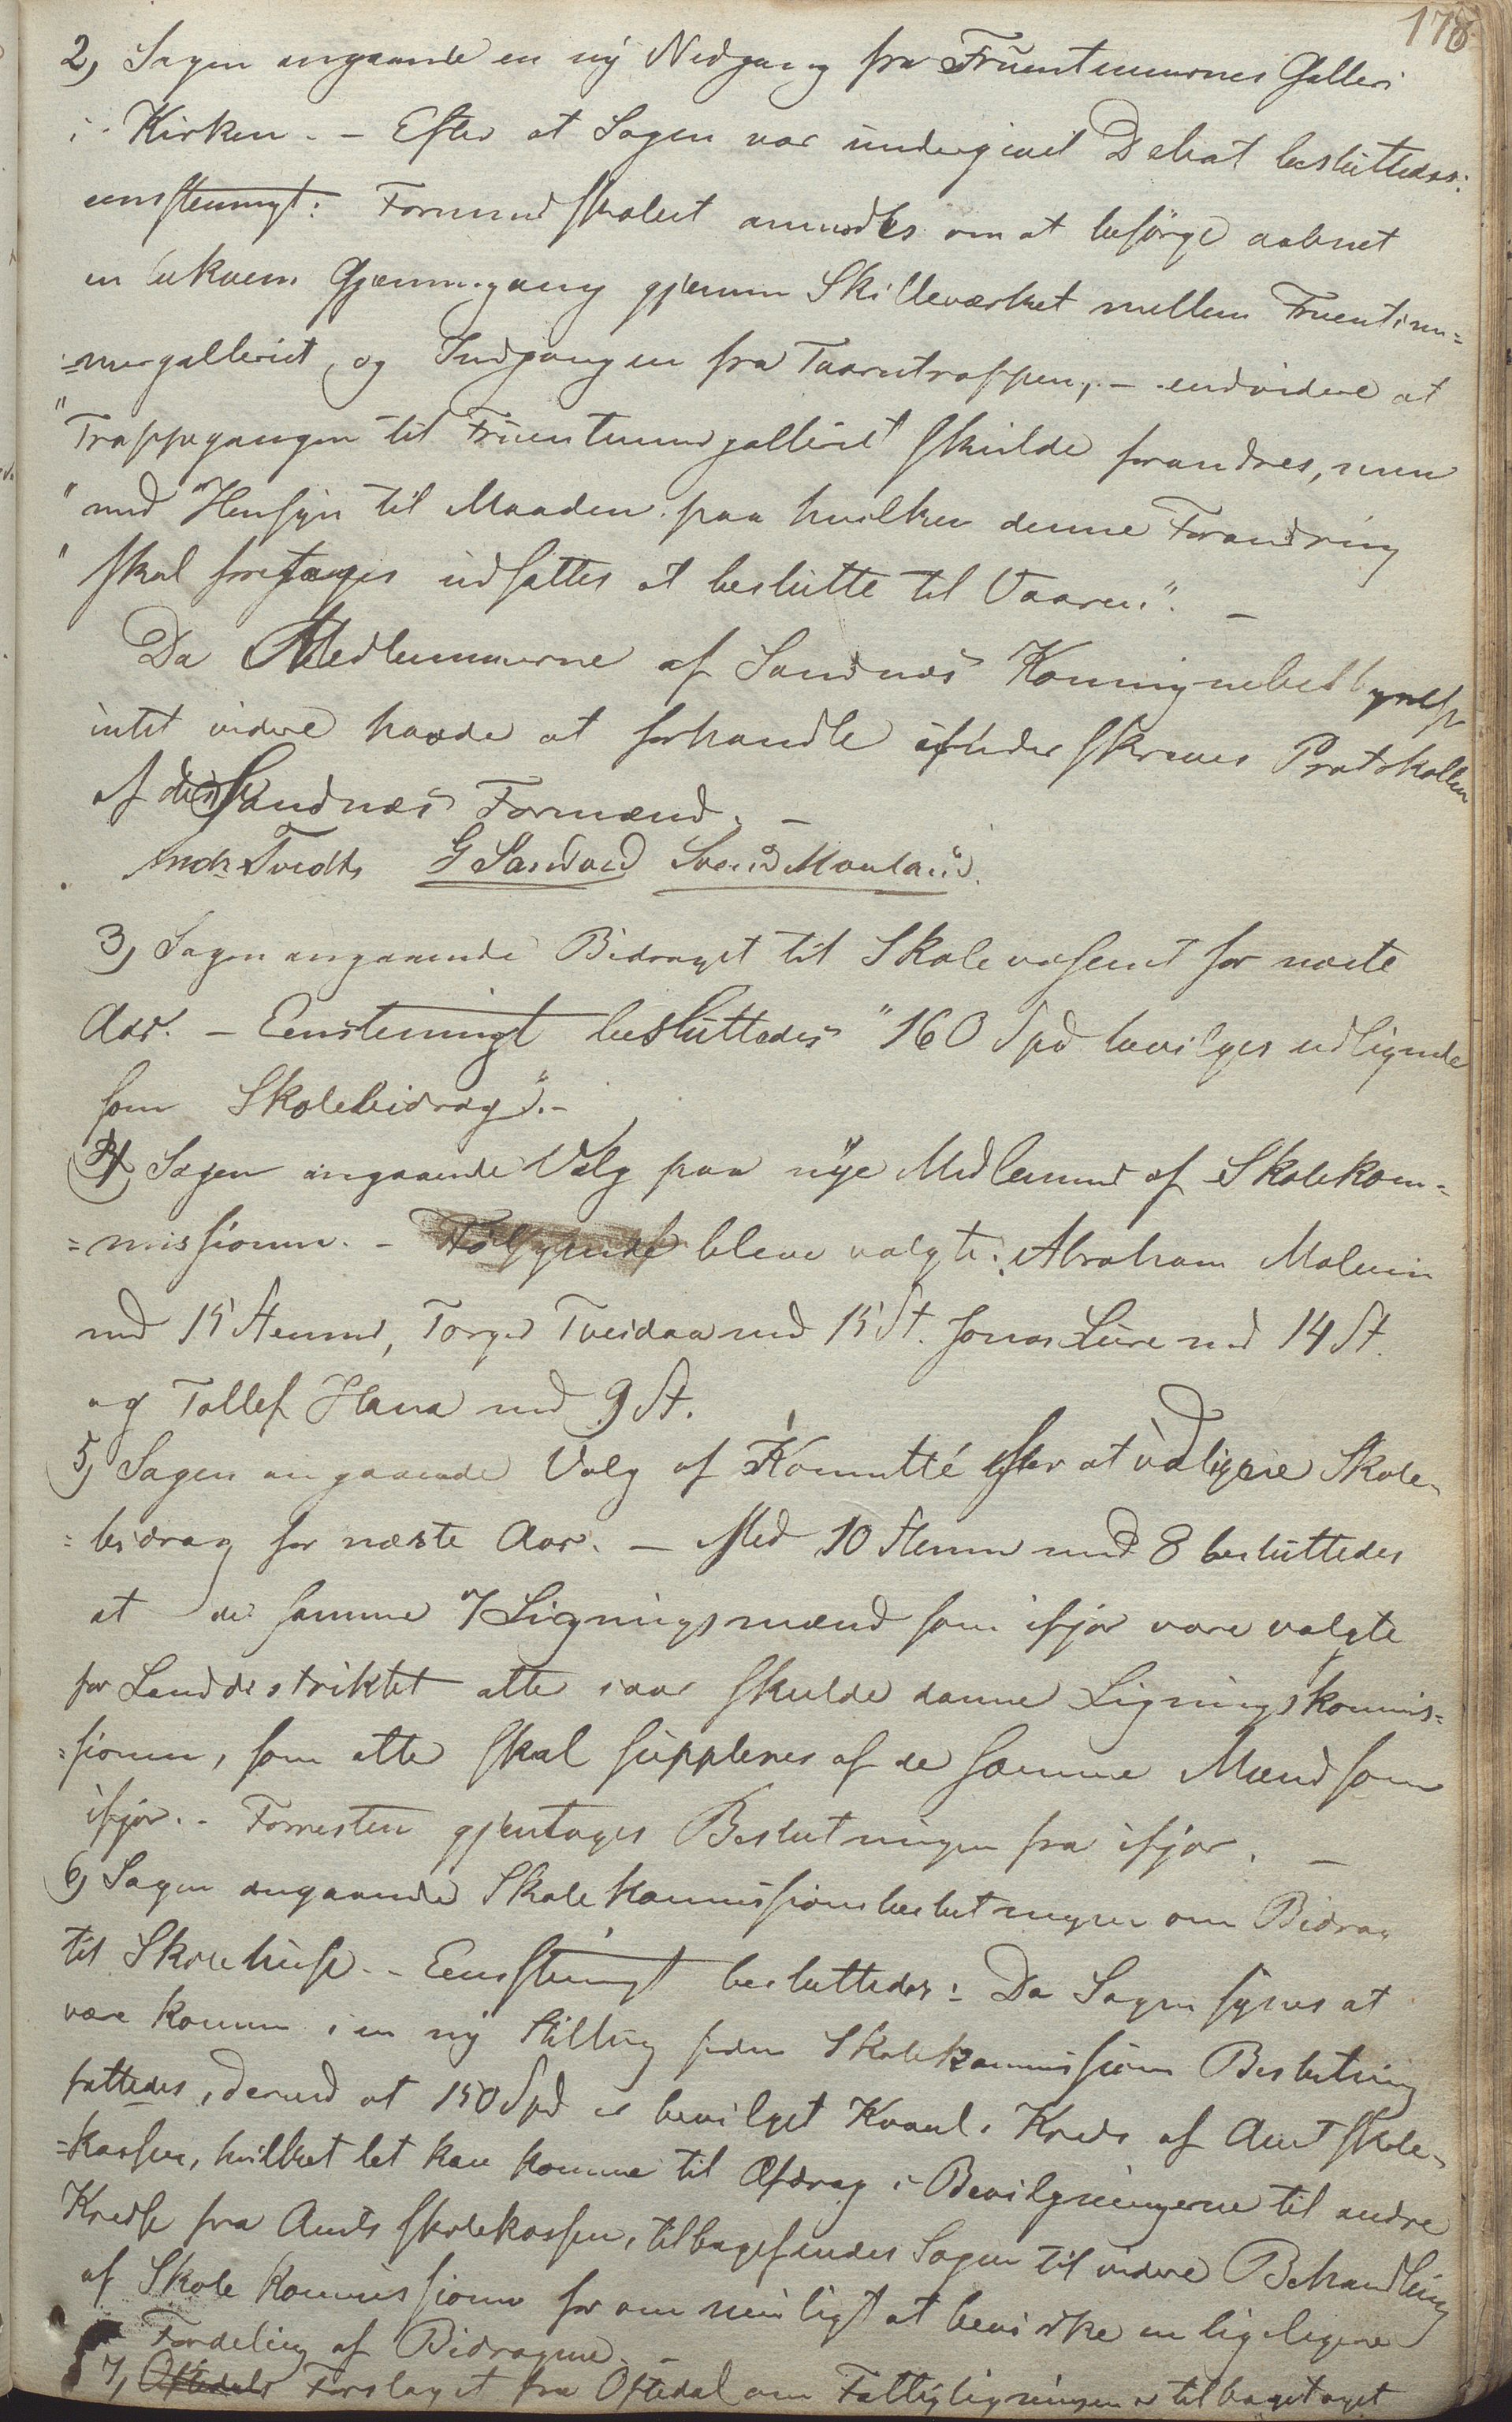 178
2, Sagen angaaende en ny Nedgang fra Fruentimmernes Galleri
i Kirken. – Efter at Sagen var undergivet Debat besluttedes:
eenstemmigt: Formandskabet anmodes om at besørge aabnet
en bekvem Gjennemgang gjennem Skilleværket mellem Fruentim=
=mergalleriet og Indgangen fra Taarntrappen, – endvidere at
"Trappegangen til Fruentimmergalleriet skulde forandres, men
"med Hensyn til Maaden paa hvilken denne Forandring
"skal foretages udsættes at beslutte til Vaaren". –
Da Medlemmerne af Sandnæs Kommunebestyrelse
intet videre havde at forhandle underskreves Protokollen
af Sandnæs Formænd. –
Tvedt G Sandved Svend Mauland.
3, Sagen angaaende Bidraget til Skolevæsenet for næste
Aar. – Eenstemmigt besluttedes "160 Spd bevilges udlignede
som Skolebidrag". –
4, Sagen angaaende Valg paa nye Medlemmer af Skolekom=
=missionen. – Følgende bleve valgte: Abraham Malmin
med 15 Stemmer, Torger Tveidaa med 15 St. Jonas Lure med 14 St.
og Tollef Hana med 9 St.
5, Sagen angaaende Valg af Komitté for at udligne Skole=
=bidrag for næste Aar. – Med 10 Stemmer mod 8 besluttedes
at de samme 7 Ligningsmænd som ifjor vare valgte
for Landdistriktet atter iaar skulde danne Ligningskommis=
=sionen, som atter skal suppleres af de samme Mænd som
ifjor. – Forresten gjentages Beslutningen fra ifjor. –
6, Sagen angaaende Skolekommissionsbeslutningen om Bidrag
til Skolehuse. – Eenstemmigt besluttedes: Da Sagen synes at
være kommen i en ny Stilling siden Skolekommissionens Beslutning
fattedes, derved at 150 Spd er bevilget Kvaals Kreds af Amtsskole=
=kassen, hvilket let kan komme til Afdrag i Bevilgningerne til andre
Kredse fra Amtsskolekassen, tilbagesendes Sagen til videre Behandling
af Skolekommissionen for om muligt at bevirke en ligeligere
Fordeling af Bidragene. –
7, Oftedals Forslaget fra Oftedal om Fattigligningen er tilbagetaget